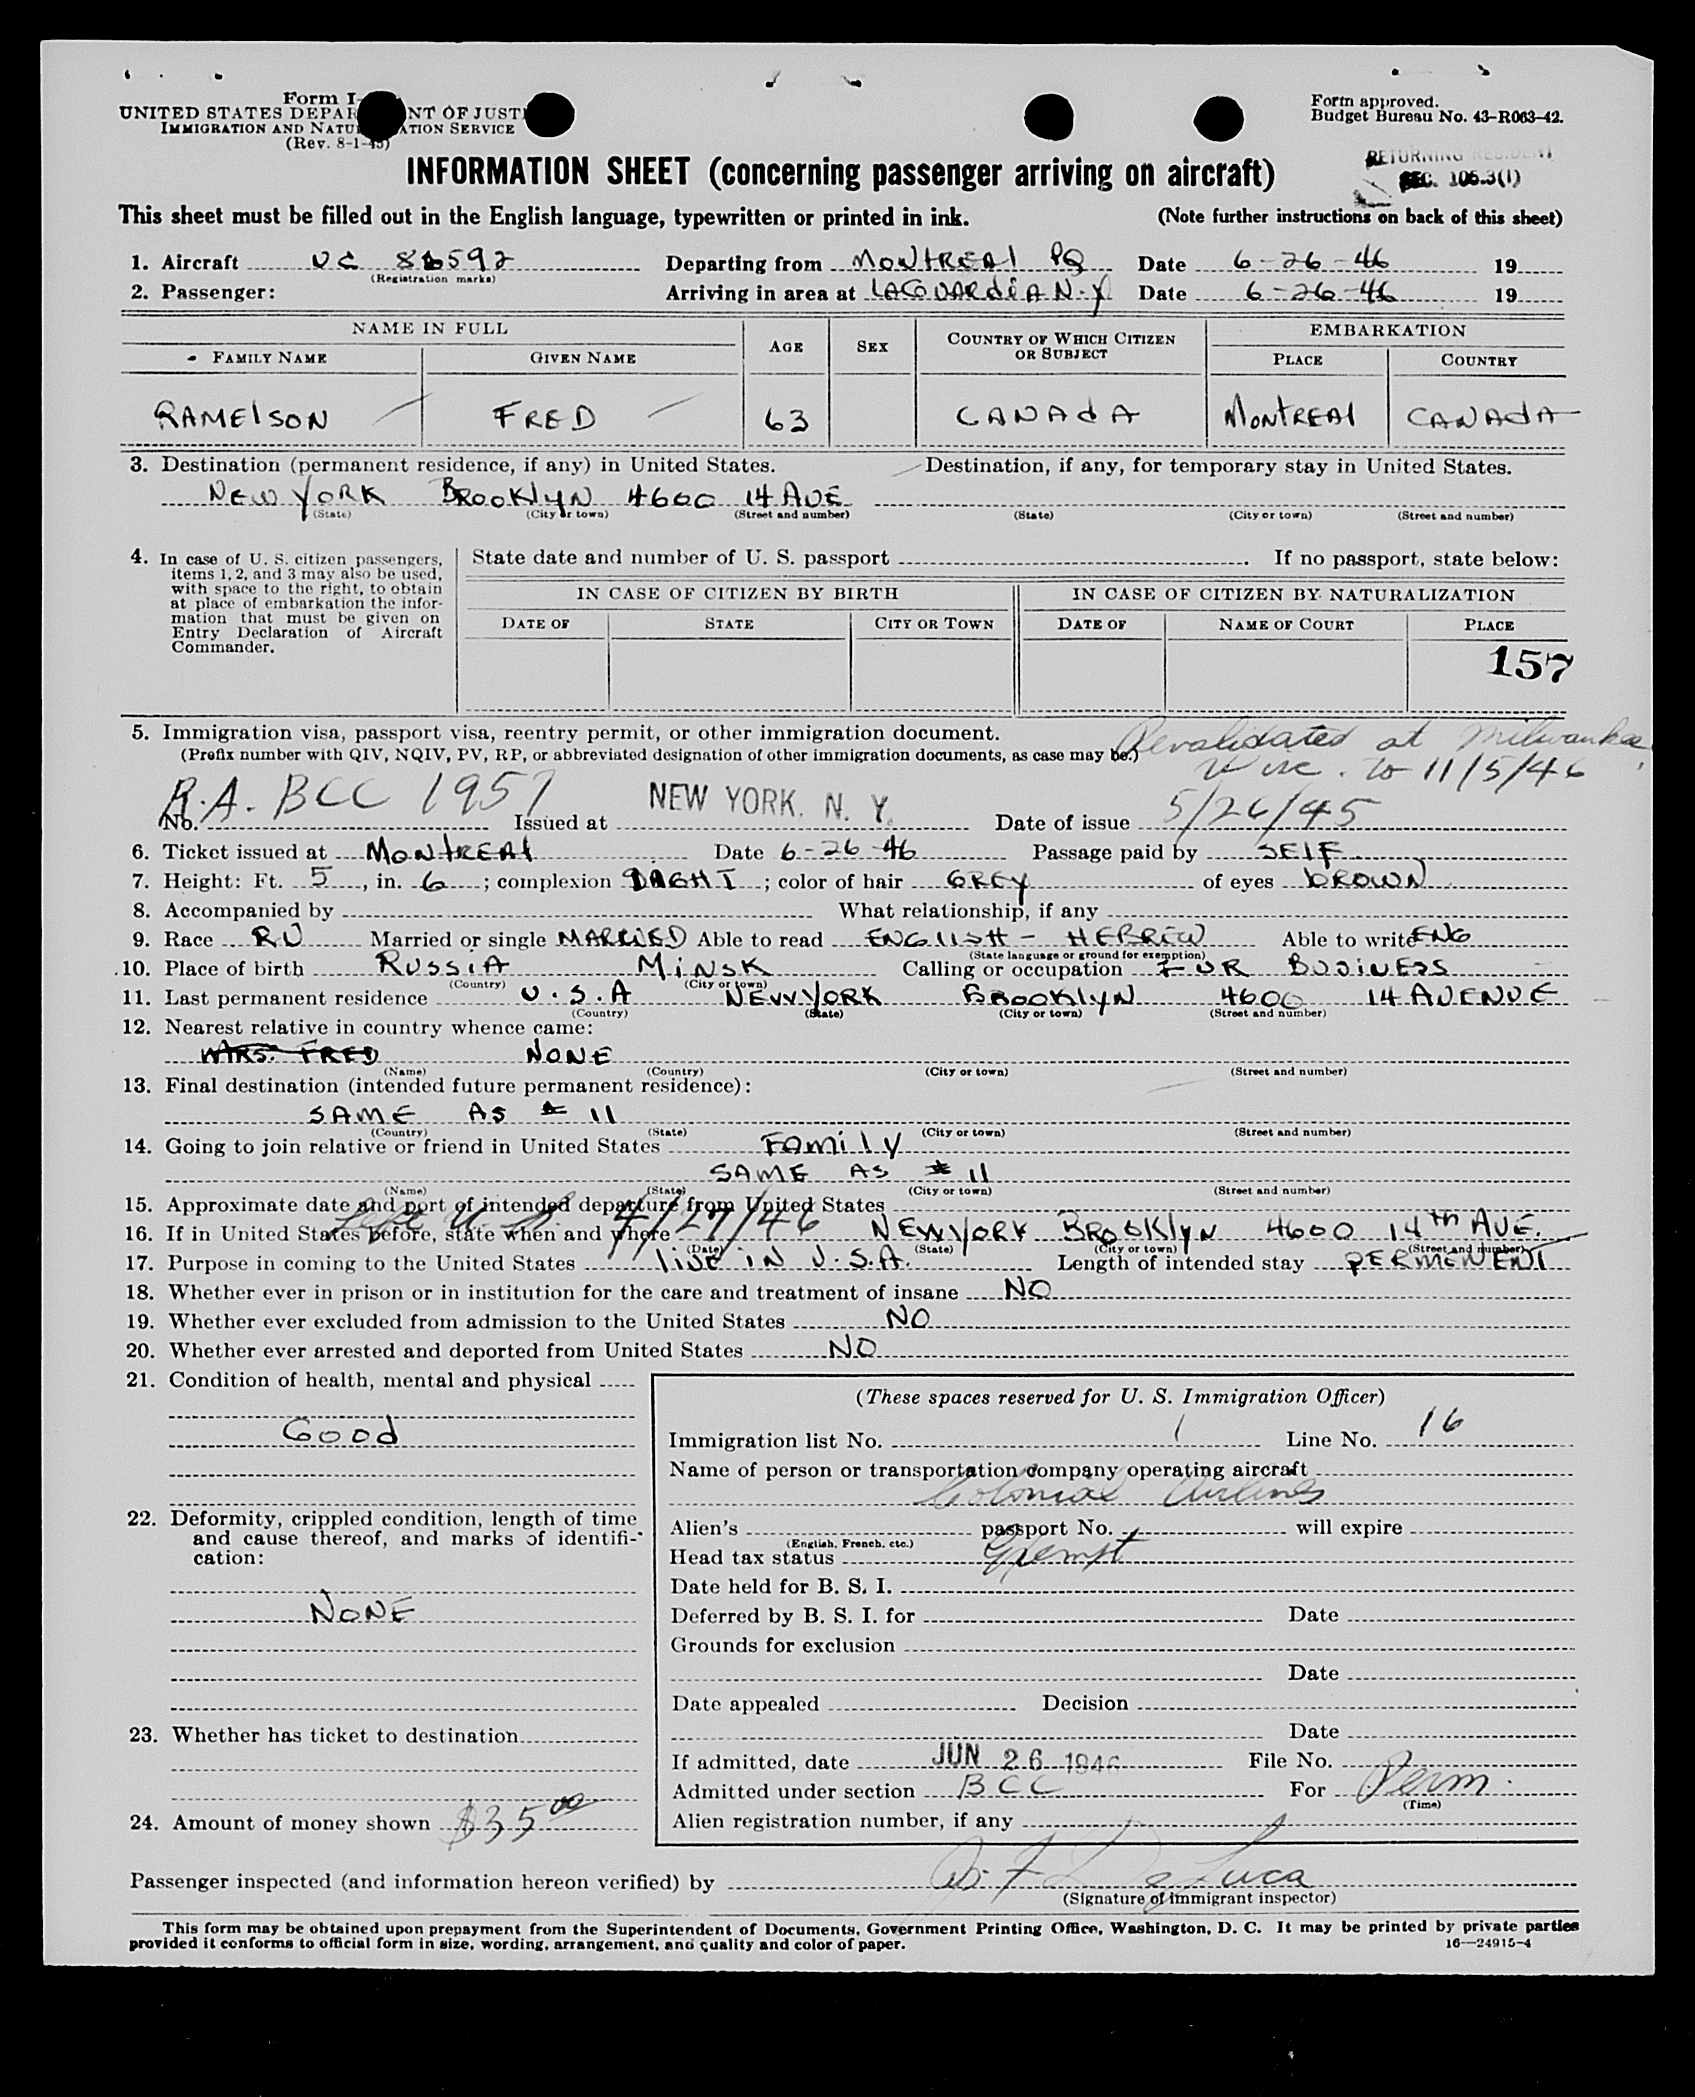 Form I-
UNITED STATES DEPAR NT OF JUSTI
IMMIGRATION AND NATU ATION SERVICE
(Rev. 8-1-45)
Form approved.
Budget Bureau No. 43-R063-42.
INFORMATION SHEET (concerning passenger arriving on aircraft)
RETURNING RESIDENT
SEC. 106.3(1)
This sheet must be filled out in the English language, typewritten or printed in ink. (Note further instructions on back of this sheet)
1. Aircraft Departing from MONTREAl PQ Date 6-26-46 19
(Registration marks)
2. Passenger: Arriving in area at LAGUARdiA N.Y Date 6-26-46 19
NAME IN FULL AGE SEX COUNTRY OF WHICH CITIZEN OR SUBJECT EMBARKATION
FAMILY NAME GIVEN NAME PLACE COUNTRY
RAMElSON FRED 63 CANAdA MONTREAl CANAdA
3. Destination (permanent residence, if any) in United States. Destination, if any, for temporary stay in United States.
NEW YORK BROOKlYN 4600 14 AVE
(State) (City or town) (Street and number) (State) (City or town) (Street and number)
4. In case of U. S. citizen passengers,
items 1, 2, and 3 may also be used,
with space to the right, to obtain
at place of embarkation the infor-
mation that must be given on
Entry Declaration of Aircraft
Commander.
State date and number of U. S. passport . If no passport, state below:
IN CASE OF CITIZEN BY BIRTH IN CASE OF CITIZEN BY NATURALIZATION
DATE OF STATE CITY OR TOWN DATE OF NAME OF COURT PLACE
157
5. Immigration visa, passport visa, reentry permit, or other immigration document.
(Prefix number with QIV, NQIV, PV, RP, or abbreviated designation of other immigration documents, as case may be.)
Revalidated at Milwaukee,
Wisc. to 11/5/46
R.A. BCC 1957 NEW YORK, N. Y. 5/26/45
No. Issued at Date of issue
6. Ticket issued at MONTREAl Date 6-26-46 Passage paid by SElF
7. Height: Ft. 5, in. 6; complexion ; color of hair GREY of eyes bROWN
8. Accompanied by What relationship, if any
9. Race RU Married or single MARRIED Able to read ENGlISH - HEBREW Able to write ENG
(State language or ground for exemption)
10. Place of birth RUSSiA MiNSK Calling or occupation FUR BUSINESS
(Country) (City or town)
11. Last permanent residence U.S.A NEW YORK BROOKlYN 4600 14 AVENUE
(Country) (State) (City or town) (Street and number)
12. Nearest relative in country whence came:
MRS. FRED NONE
(Name) (Country) (City or town) (Street and number)
13. Final destination (intended future permanent residence):
SAME AS # 11
(Country) (State) (City or town) (Street and number)
14. Going to join relative or friend in United States FAMilY
SAME AS # 11
(Name) (State) (City or town) (Street and number)
15. Approximate date and port of intended departure from United States
Left U.S. 4/27/46
16. If in United States before, state when and where NEW YORK BROOKlYN 4600 14TH AVE.
(Date) (State) (City or town) (Street and number)
17. Purpose in coming to the United States liVE iN U.S.A. Length of intended stay PERMENENT
18. Whether ever in prison or in institution for the care and treatment of insane NO
19. Whether ever excluded from admission to the United States NO
20. Whether ever arrested and deported from United States NO
21. Condition of health, mental and physical
GOOd
22. Deformity, crippled condition, length of time
and cause thereof, and marks of identifi-
cation:
NONE
23. Whether has ticket to destination
24. Amount of money shown $35.00
(These spaces reserved for U. S. Immigration Officer)
Immigration list No. 1 Line No. 16
Name of person or transportation company operating aircraft
Colonial Airlines
Alien's passport No. will expire
(English, French, etc.)
Head tax status Exempt
Date held for B. S. I.
Deferred by B. S. I. for Date
Grounds for exclusion
Date
Date appealed Decision
Date
If admitted, date JUN 26 1946 File No.
Admitted under section BCC For Perm.
(Time)
Alien registration number, if any
Passenger inspected (and information hereon verified) by De Luca
(Signature of immigrant inspector)
This form may be obtained upon prepayment from the Superintendent of Documents, Government Printing Office, Washington, D. C. It may be printed by private parties
provided it conforms to official form in size, wording, arrangement, and quality and color of paper. 16—24915-4